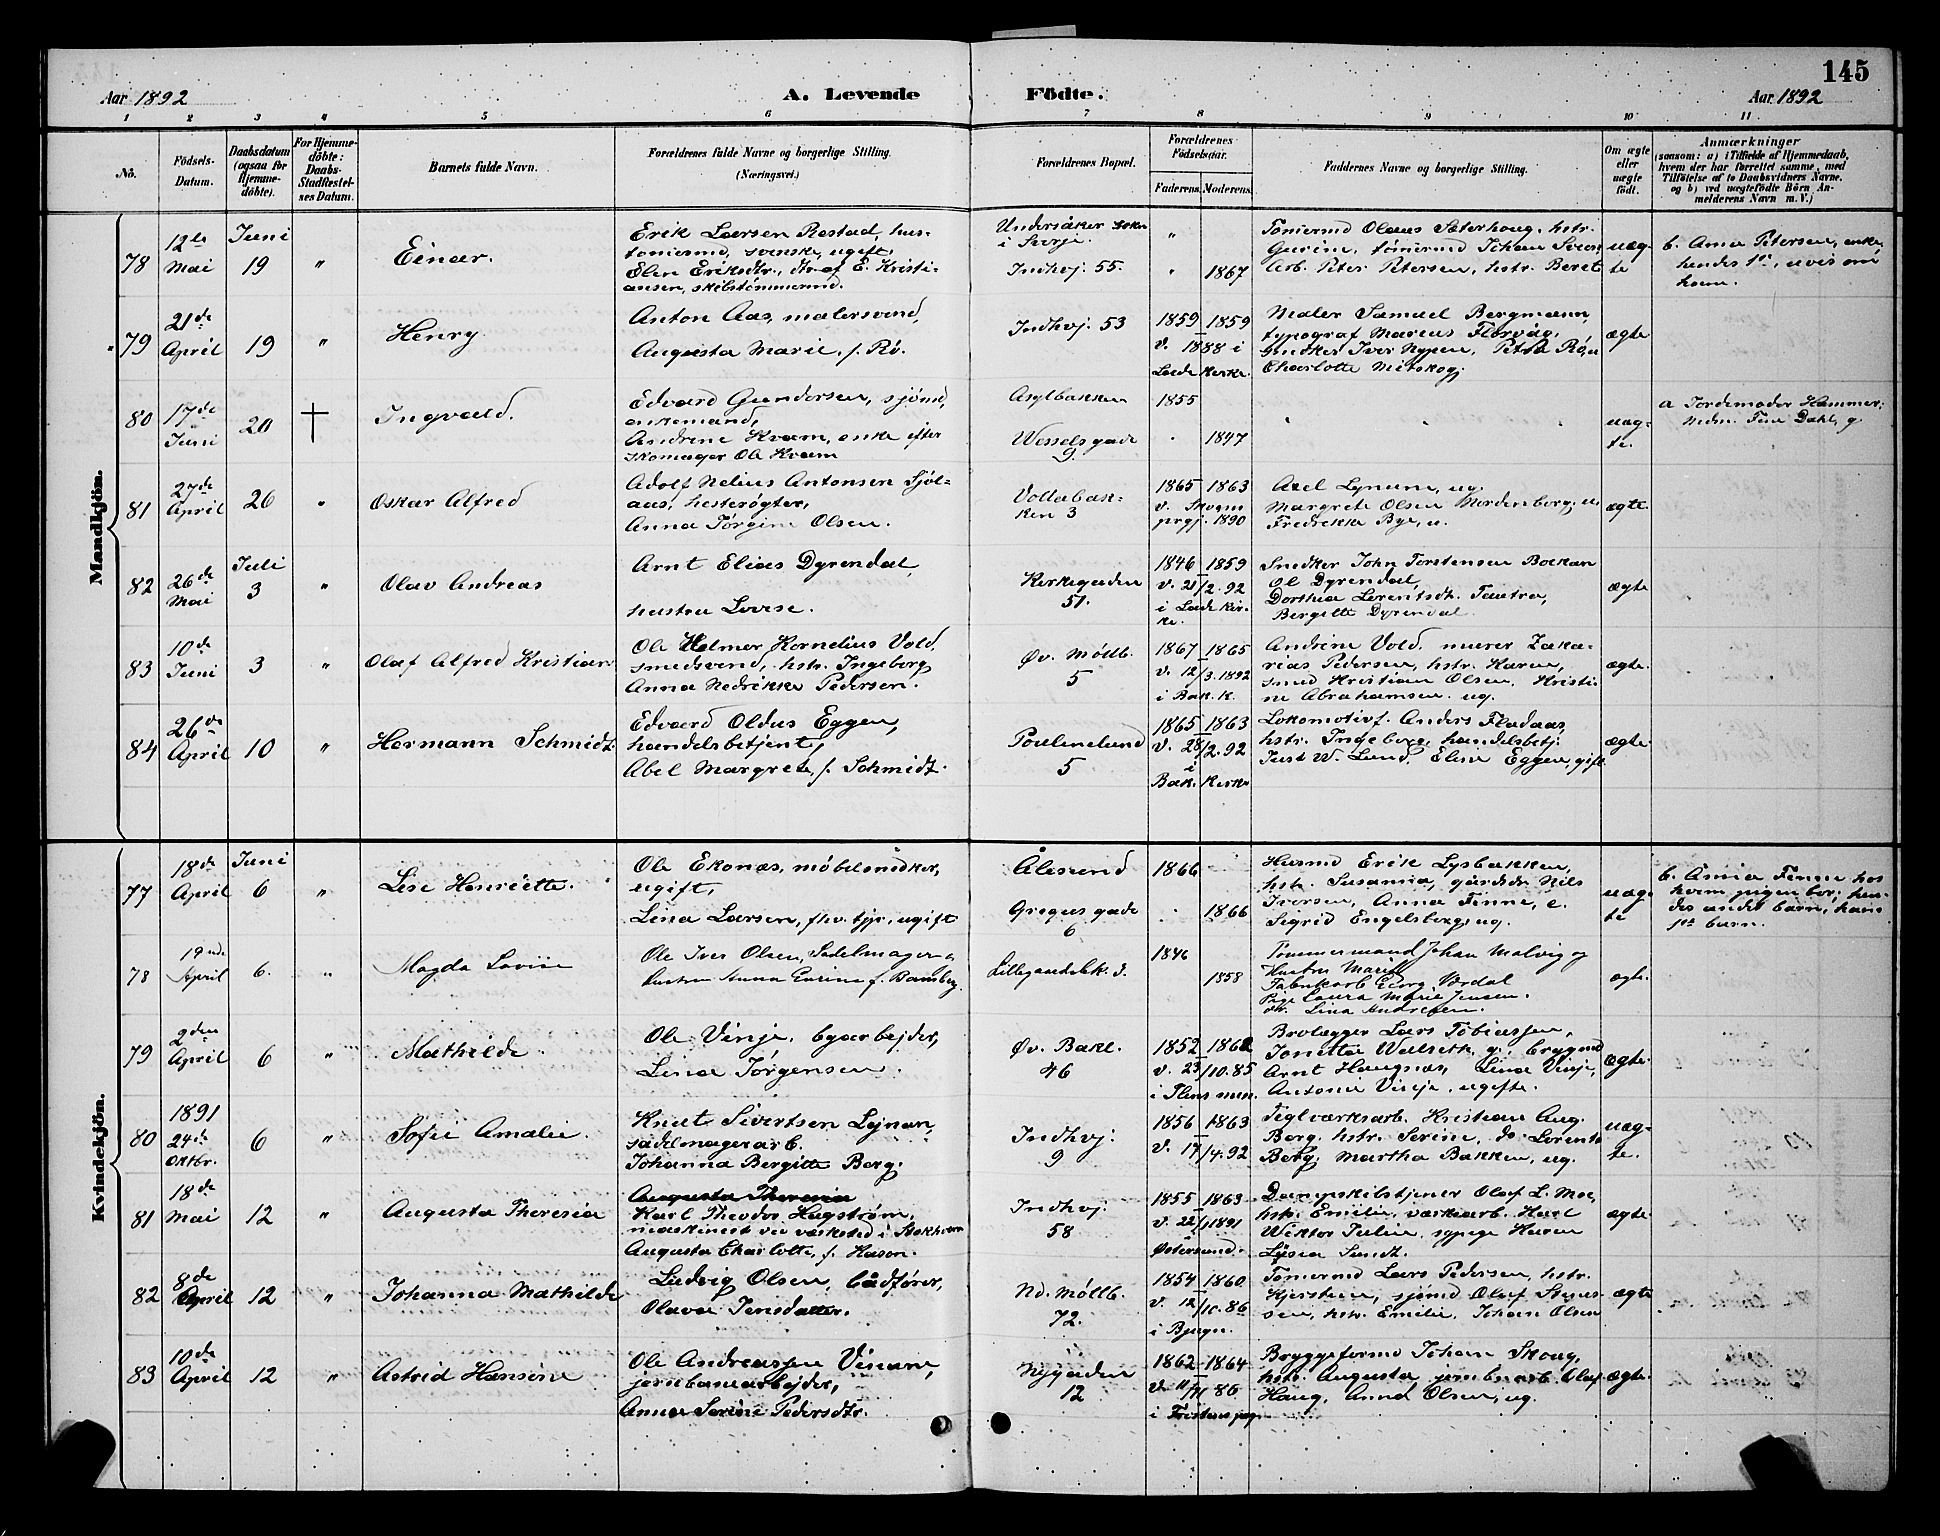 145
Aar 1892
A. Levende Födte.
Aar 1892
1 2 3 4 5 6 7 8 9 10 11
No.
Födsels-Datum.
Daabsdatum (ogsaa for Hjemme-döbte).
For Hjemme-döbte: Daabs-Stadfæstel-ses Datum.
Barnets fulde Navn.
Forældrenes fulde Navne og borgerlige Stilling.
(Næringsvei.)
Forældrenes Bopæl.
Forældrenes Födselsaar.
Faderens. Moderens.
Faddernes Navne og borgerlige Stilling.
Om ægte eller uægte födt.
Anmærkninger
(saasom: a) i Tilfælde af Hjemmedaab,
hvem der har forrettet samme, med
Tilföielse af to Daabsvidners Navne,
og b) ved uægtefödte Börn An-
melderens Navn m. V.)
Mandkjön.
78
12te Mai
Juni 19
"
Einar.
Erik Larsen Rostad, hus-
tømermd, svenske, ugift
Elen Eriksdtr., dtr. af E. Kristi-
ansen, skibstømmermd.
Undersåker sokn
i Sverje.
Indhvj. 55.
" 1867
Tømermd Olaus Sæterhaug, hstr.
Gurine, tømermd Johan Svens
Arb. Peter Petersen, hstr. Beret
uæg-
te
b. Anna Petersen, enke,
hendes 1ste, uvis om
ham.
79
21de April
19
"
Henry.
Anton Aas, malersvend,
Augusta Marie, f. Rø.
Indhvj. 53
1859 1859
v. 1888 i
Lade kirke.
Maler Samuel Bergmann,
typograf Marius Florvåg,
snedker Iver Nypen, Petra Røe,
Charlotte Mitskogj.
ægte
80
17de Juni
20
†
Ingvald.
Edvard Gundersen, sjømd,
enkemand,
Andrine Kvam, enke efter
skomager Ole Kvam
Asylbakken
Wesselsgade
9.
1855
1847
uæg-
te.
a Jordemoder Hammer;
Nedm. Fine Dahl, g.
81
27de April
26
"
Oskar Alfred
Adolf Nelius Antonsen Sjøl-
aas, hesterøgter,
Anna Jørgine Olsen.
Vollabak-
ken 3
1865 1863
v. Skogn
prgj. 1890
Axel Lynum, ug.
Margrete Olsen Mordenborg, u.
Fredrikke Bye, u.
ægte.
82
26de Mai
Juli 3
"
Olav Andreas
Arnt Elias Dyrendal,
hustru Lovise.
Kirkegaden
51.
1846 1859
v. 21/2. 92
i Lade kir-
ke.
Snedker John Torstensen Bokan
Ol Dyrendal,
Dorthea Lorentsdt. Tautra,
Bergitte Dyrendal.
ægte
83
10de Juni
3
"
Olaf Alfred Kristian
Ole Helmer Kornelius Vold,
smedsvend, hstr. Ingeborg
Anna Nedrikke Pedersen.
Øv. Møllb.
5
1867 1865
v. 12/3. 1892
i Bak. k.
Andrine Vold, murer Zaka-
rias Pedersen, hstr. Karen,
smed Kristian Olsen, Kristi-
ne Abrahamsen. ug.
ægte.
84
26de April
10
"
Hermann Schmidt.
Edvard Oldus Eggen,
handelsbetjent,
Abel Margrete, f. Schmidt.
Poulinelund
5
1865 1863
v. 28/2. 92
i
Bak. kirke
Lokomotivf. Anders Fladaas,
hstr. Ingeborg, handelsbetj.
Just W. Lund, Eline Eggen, gift
ægte.
Kvindekjön.
77
18de April
Juni 6
"
Lise Henriette.
Ole Ekonæs, møbelsnedker,
ugift,
Lina Larsen, fhv. tjp., ugift
Ålesund
Gregus gade
6
1866
1866
Husmd Erik Lysbakken,
hstr. Susanna, gårdsdr. Nils
Iversen, Anna Finne, e.
Sigrid Engelsberg, ug.
uæg-
te
b. Anna Finne hos
hvem pigen bor; hen-
des andet barn, hans
1ste barn.
78
19de April
6.
"
Magda Lovise
Ole Iver Olsen, Sadelmager og
hustru Anna Eurine f. Ramsberg.
Lillegaardsbk. 3.
1846
1858
Tømmermand Johan Malvig og
Hustru Marit
Fabrikarb Georg Værdal
Pige Laura Marie Jensen.
do. Lina Andresen.
ægte.
79
9den April
6
"
Mathilde
Ole Vinje, byarbejder,
Lina Jørgensen.
Øv. Bakl.
46
1852 1862
v. 23/10. 85
i Ilens men.
Brolægger Lars Tobiassen,
Jonetta Wulseth, g., brygmd
Arnt Haugnæs, Lina Vinje,
Antonie Vinje, ugifte.
ægte.
80
1891
24de
Oktbr.
6
"
Sofie Amalie.
Knut Sivertsen Lejnan,
sadelmagerarb.
Johanna Bergitte Berg.
Indhvj.
9
1856 1863
v. 17/4. 92
Teglværksarb. Kristian Aug.
Berg, hstr. Serine, do. Lorents
Berg, Martha Bakken, ug.
uæg-
te.
81
18de Mai
12
"
Augusta Theresia
Augusta Theresia
Karl Theodor Hagstrøm,
maskinist ved værksted i Stokholm
Augusta Charlotte, f. Hason.
Indhvj.
58
1855 1863
v. 22/1 1891
Østersund.
Dampskibstjener Olaf L. Moe,
hstr. Emilie, værksarb. Karl
Wiktor Julin, sypige Karen
Lysia Sundt.
ægte.
82
8de April
12
"
Johanna Mathilde
Ludvig Olsen, bådfører,
Olava Jensdatter.
Nd. Møllb.
72.
1854 1860
v. 12/10. 86
i Bjugn.
Tømermd Lars Pedersen, hstr.
Kjerstine, sjømd Olaf Simes-
sen, hstr. Emilie, Johan Olsen
ægte
83
10de April
12
"
Astrid Hansine
Ole Andreassen Vinan,
jernbanearbejder,
Anna Serine Pedersdtr.
Nygaden
12
1862 1864
v. 11/11 86
i Frostens prgj.
Bryggeformd Johan Skoug,
hstr. Augusta, jernbarb. Olaf
Haug, Anna Olsen, ug.
ægte.